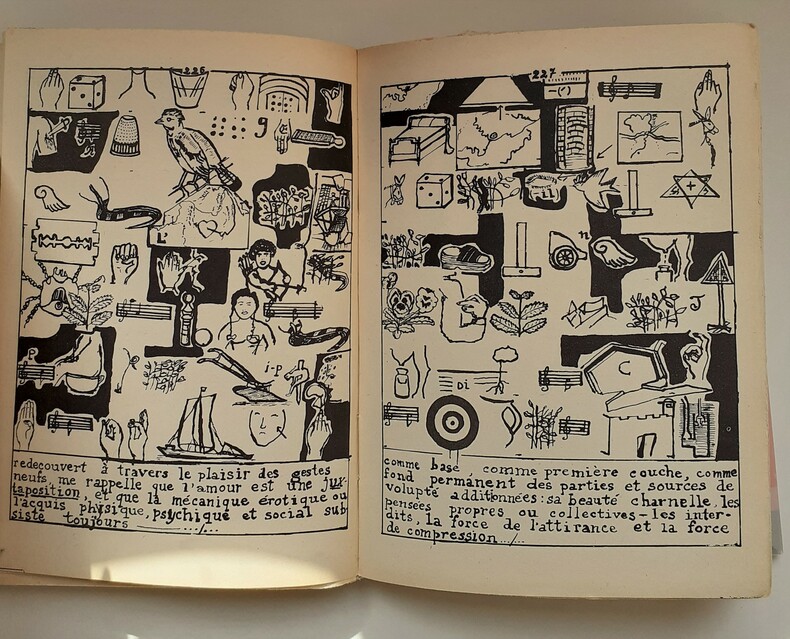 226
9
L'
i-p
redecouvert à travers le plaisir des gestes
neufs, me rappelle que l'amour est une jux-
taposition, et que la mécanique érotique ou
l'acquis physique, psychique et social sub-
siste toujours ....../...
227
-(')
n
J
C
DI
comme base, comme première couche, comme
fond permanent des parties et sources de
volupté additionnées: sa beauté charnelle, les
pensées propres ou collectives - les inter-
dits, la force de l'attirance et la force
de compression .../...